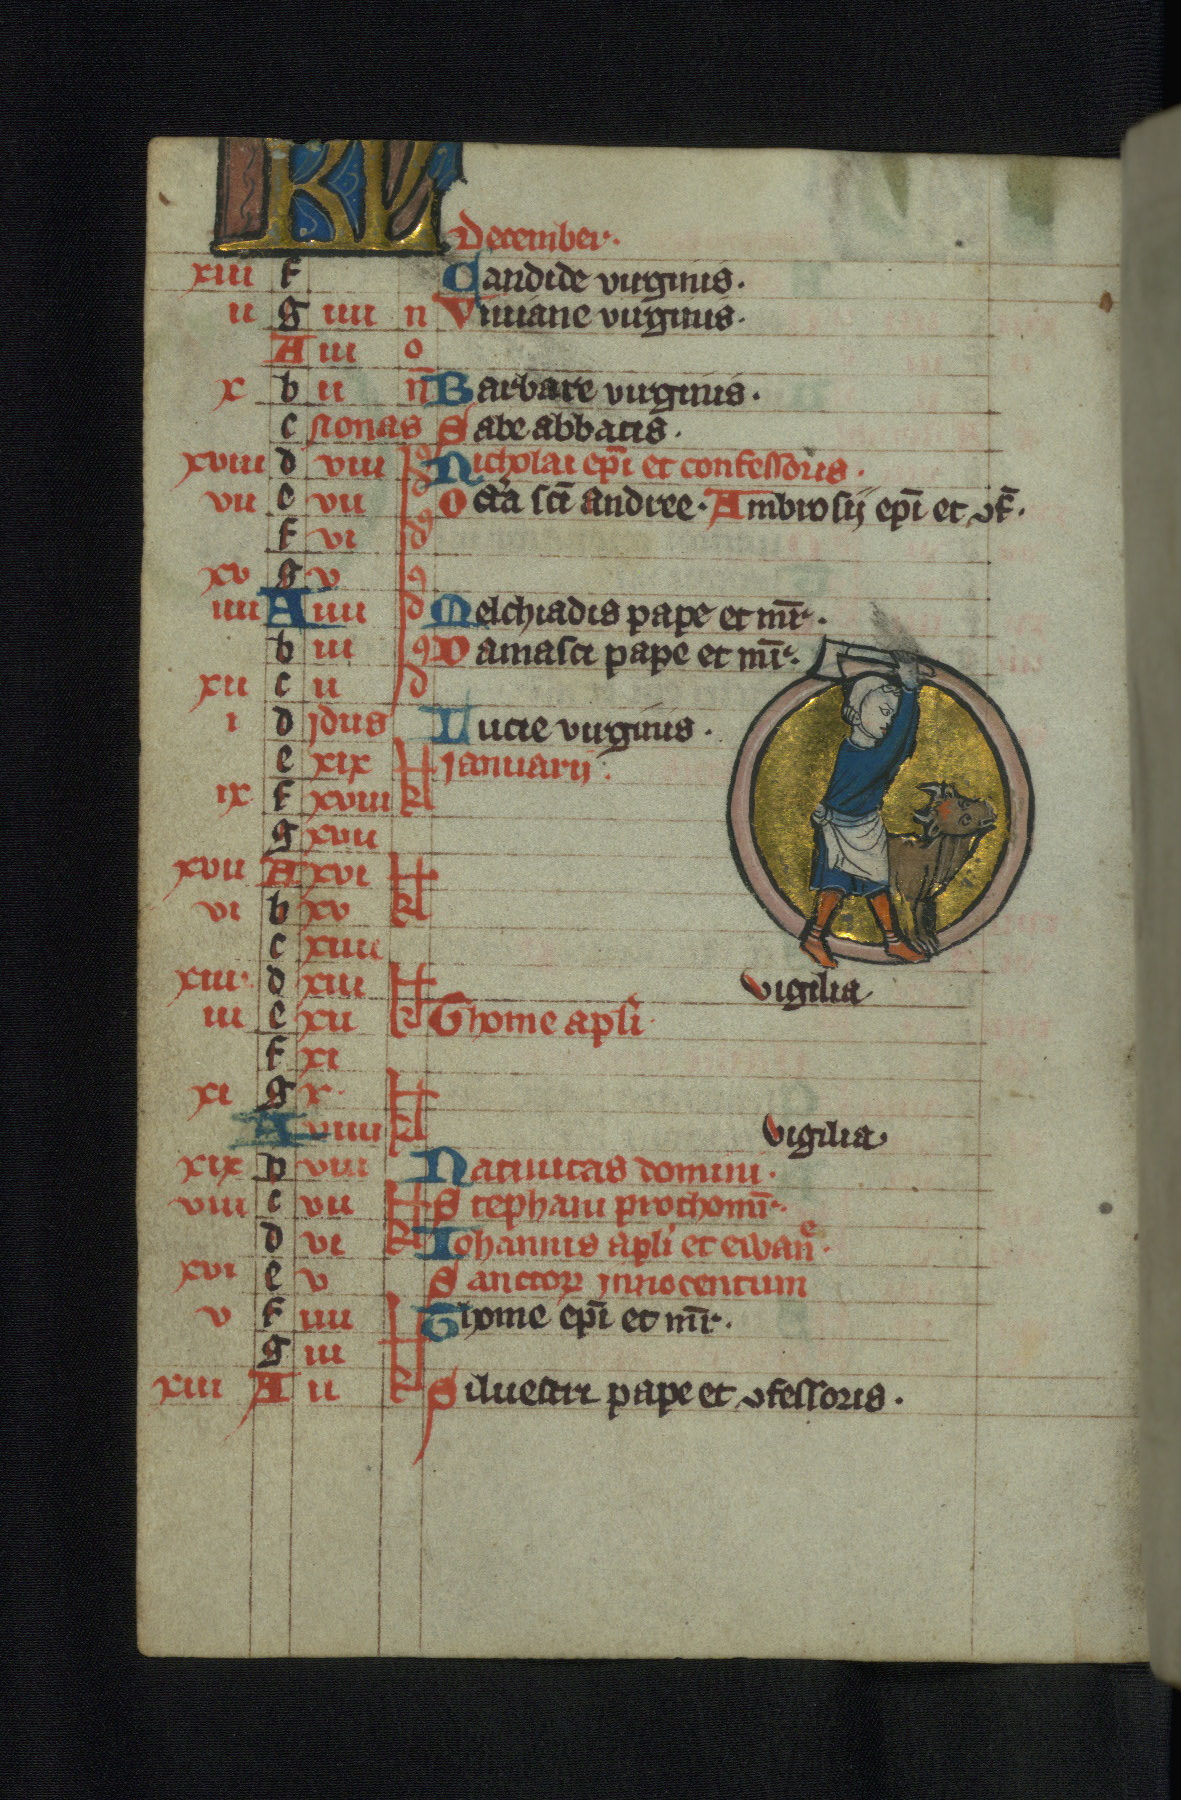 KL
December.
xiii f Candide virginis.
ii g iiii n Viuiane virginis.
A iii o
x b ii n̄ Barbare virginis.
c nonas Sabe abbatis.
xviii d viii Nicholai ep̄i et confessoris.
vii e vii Octa̾ sc̄i andree. Ambrosij ep̄i et ɔf̄.
f vi d9
xv g v
iiii A iiii d Melchiadis pape et mr̄.
b iii 9 Damasci pape et mr̄.
xii c ii d
i d jdus Lucie virginis.
e xix kl januarij.
ix f xviii
g xvii
xvii A xvi kl
vi b xv
c xiiii
xiiii d xiii kl vigilia
iii e xii Thome apl̄i
f xi
xi g x kl
A viiii vigilia.
xix b viii Natiuitas domini.
viii c vii kl Stephani prothom̄r.
d vi Iohannis apl̄i et ewanᵉ.
xvi e v Sanctoꝝ innocentum
v f iiii kl Thome ep̄i et mr̄.
g iii
xiii A ii Siluestri pape et ɔfessoris.